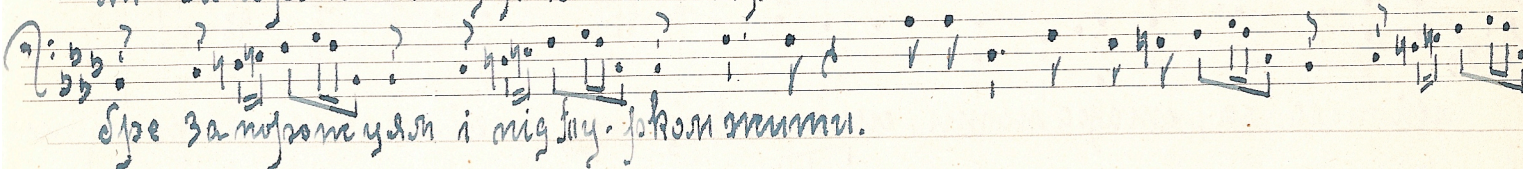 бре запорожцям і під Ту-рком жити.